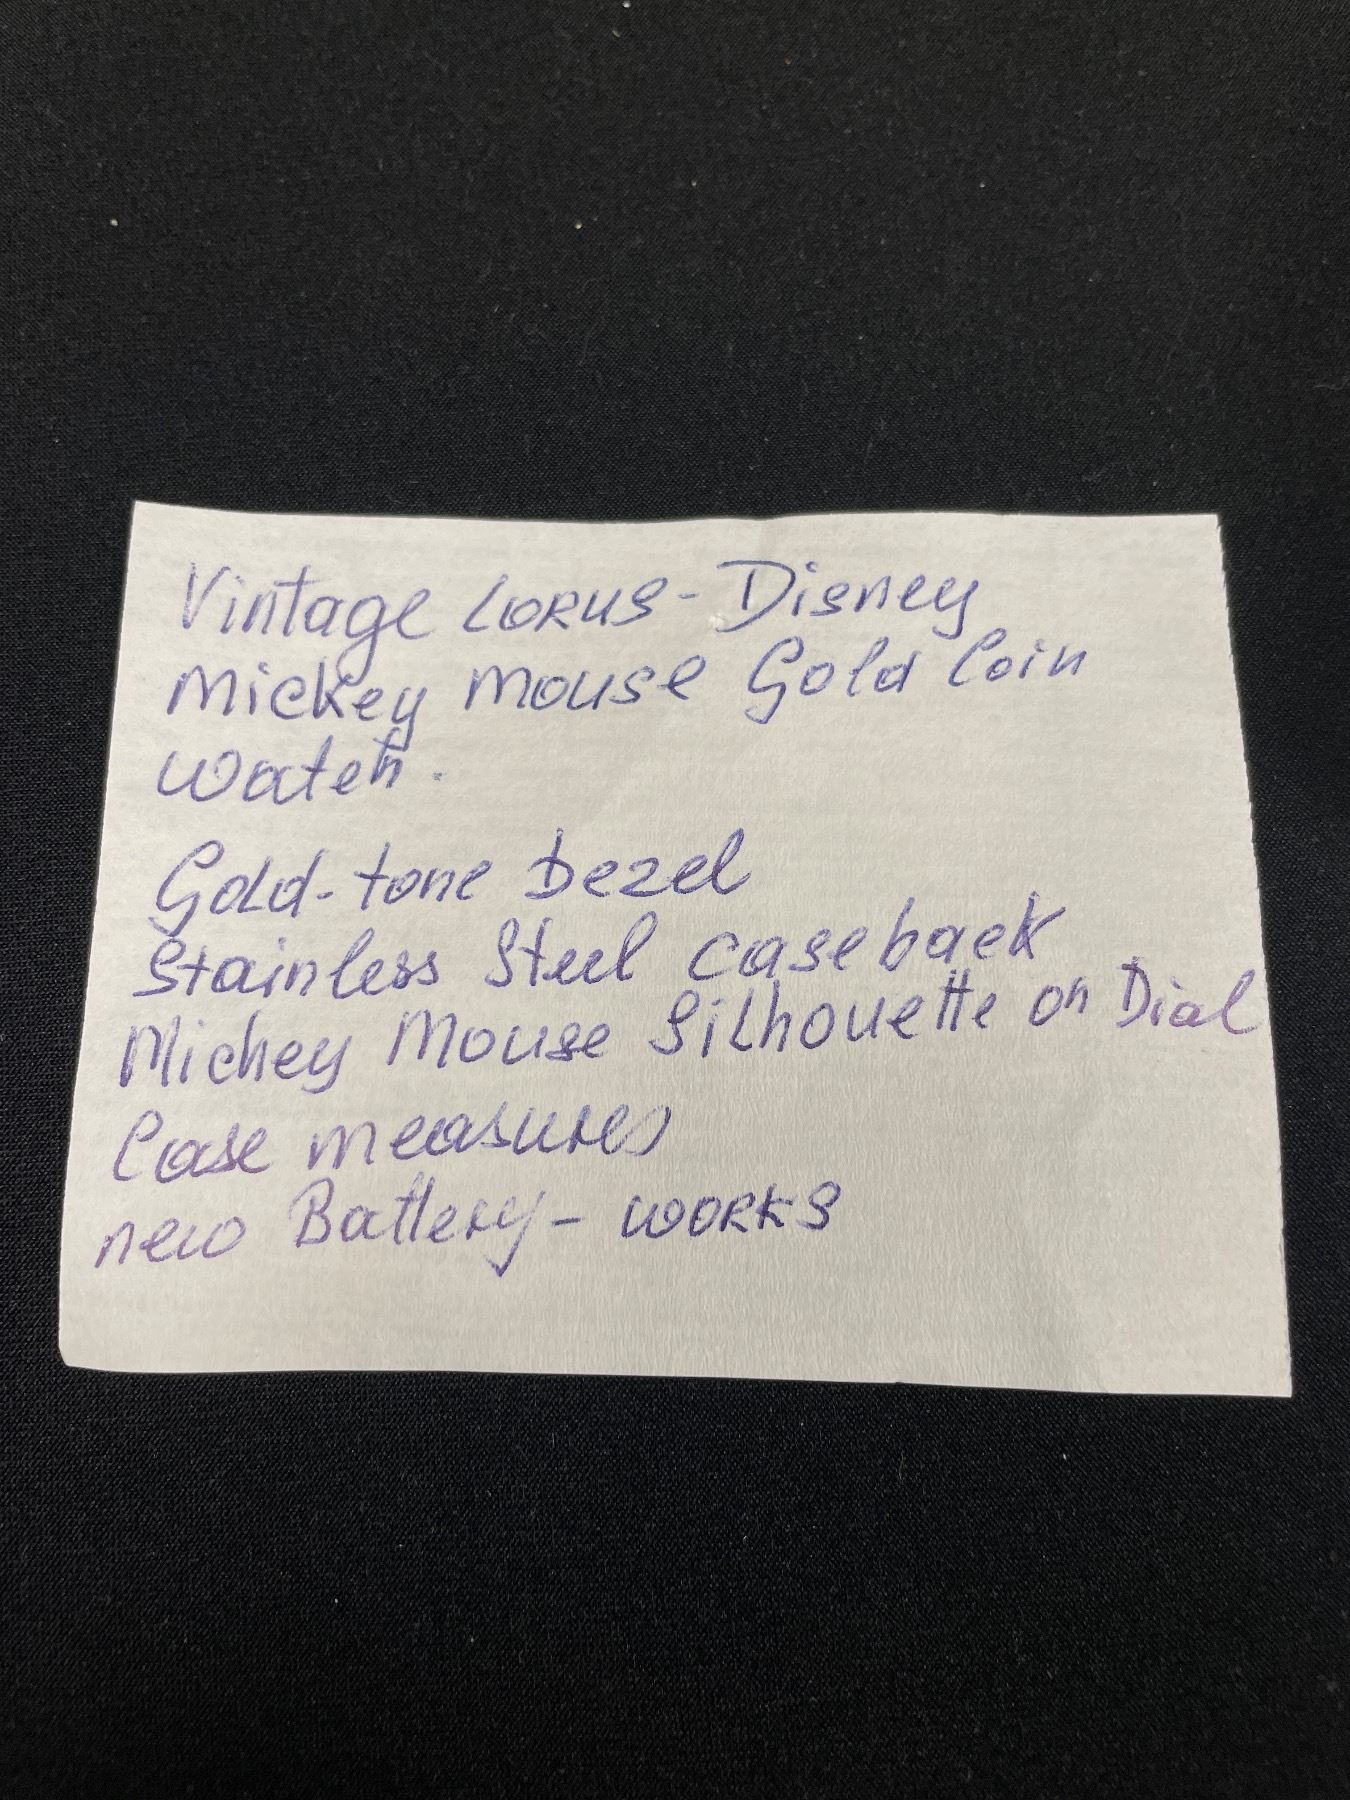 Vintage LORUS - Disney
Mickey Mouse Gold Coin
Watch.
Gold-tone bezel
Stainless Steel caseback
Mickey Mouse Silhouette on Dial
Case measures
new Battery - WORKS